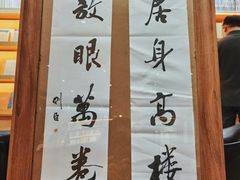 居身高楼
放眼萬卷